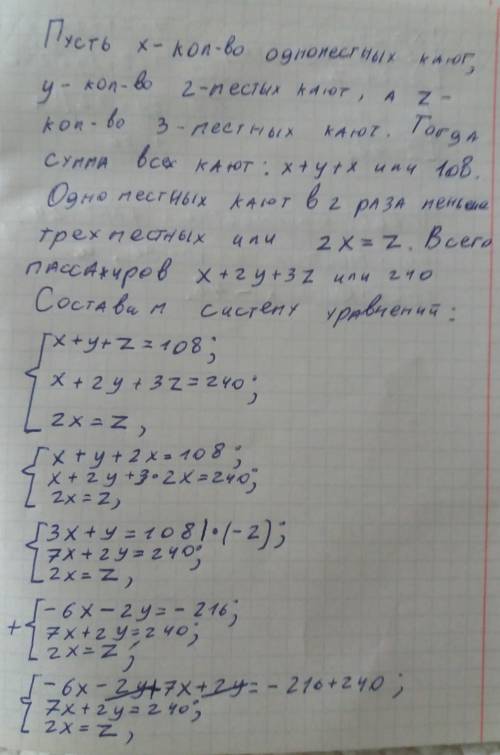 Пусть x - кол-во одноместных кают,
y - кол-во 2-местых кают, а z -
кол-во 3-местных кают. Тогда
сумма всех кают: x+y+x или 108.
Одноместных кают в 2 раза меньше
трехместных или 2x = z. Всего
пассажиров x+2y+3z или 240
Составим систему уравнений:
x+y+z=108;
x+2y+3z=240;
2x=z,
x+y+2x=108;
x+2y+3·2x=240;
2x=z,
3x+y=108|·(-2);
7x+2y=240;
2x=z,
+ -6x-2y=-216;
7x+2y=240;
2x=z;
-6x-2y+7x+2y=-216+240;
7x+2y=240;
2x=z,